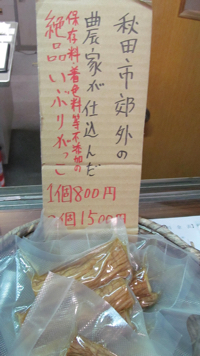 秋田市郊外の
農家が仕込んだ
保存料着色料等不添加の
絶品いぶりがっこ
1個800円
2個1500円